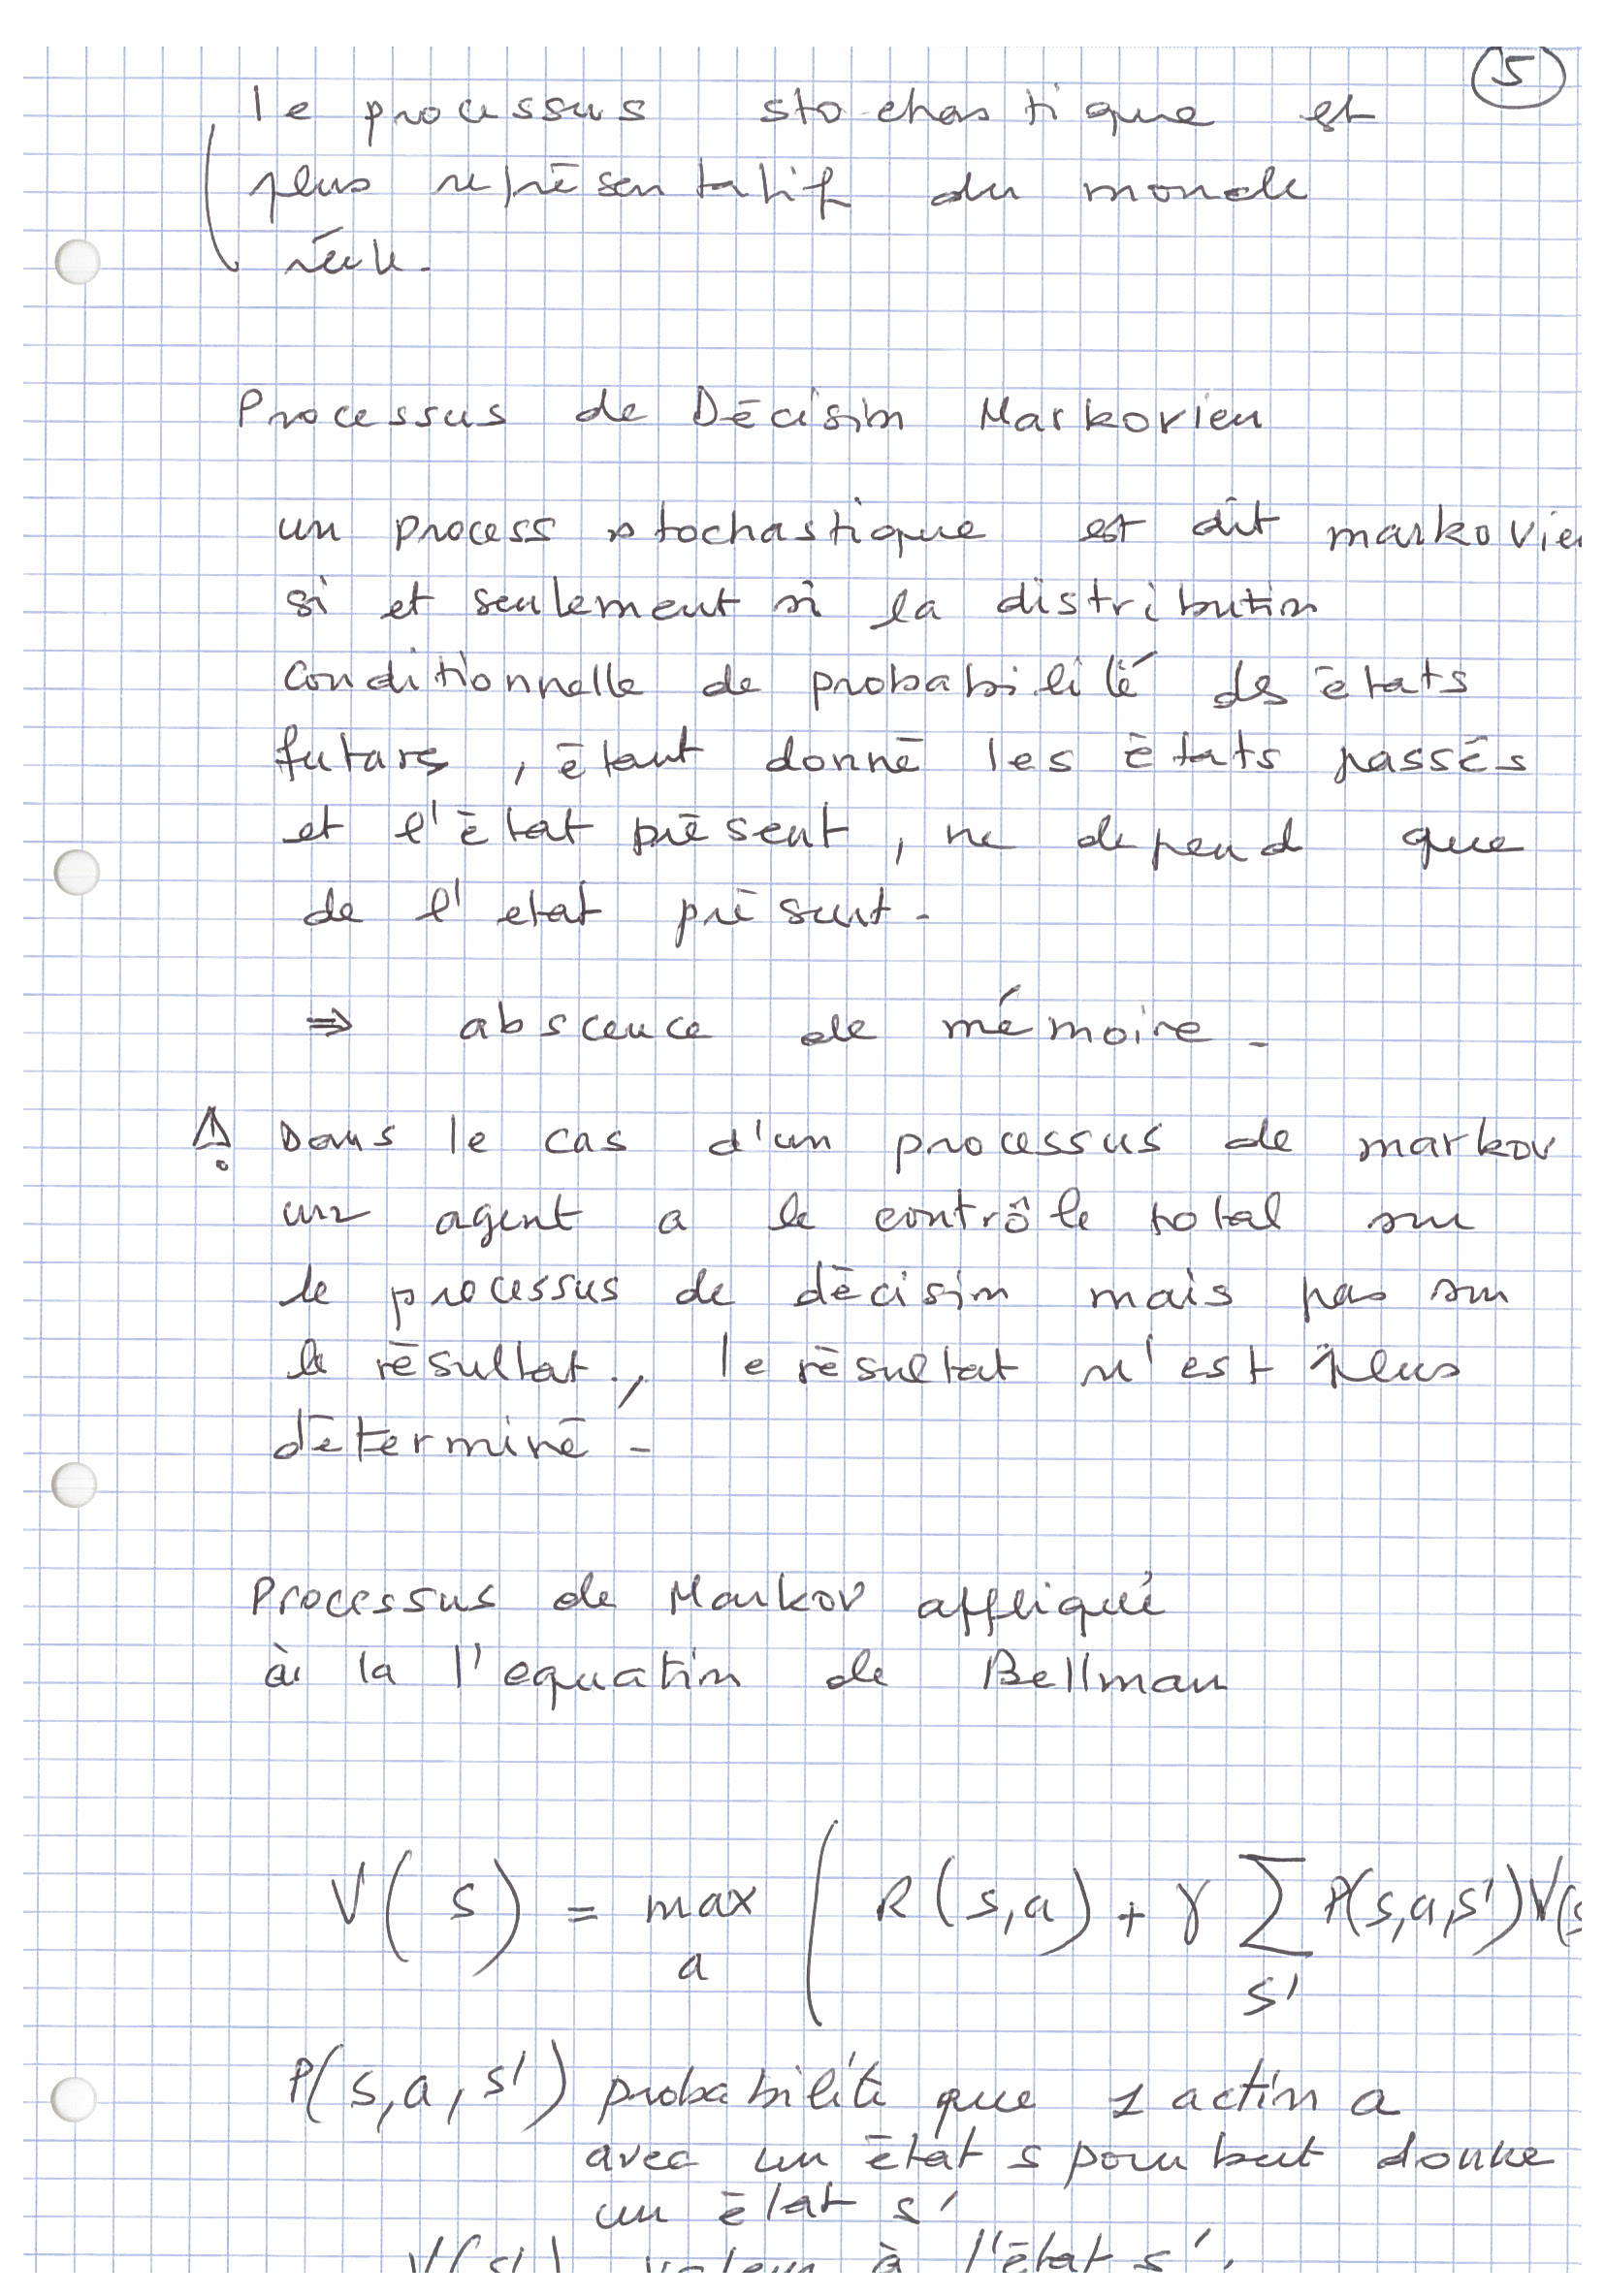 5
le processus stochastique est
plus représentatif du monde
réele.
Processus de Décision Markovien
un process stochastique est dit markovie
si et seulement si la distribution
conditionnelle de probabilité des états
futurs, étant donné les états passés
et l'état présent, ne depend que
de l'etat présent.
⇒ abscence de mémoire.
⚠ Dans le cas d'un processus de markov
un agent a le contrôle total sur
le processus de décision mais pas sur
le résultat., le résultat n'est plus
déterminé -
Processus de Markov appliqué
à la l'equation de Bellman
V(s) = max ( R(s,a) + γ ∑ P(s,a,s')V(s
a s'
P(s,a,s') probabilité que 1 action a
avec un état s pour but donne
un état s'
V(s') valeur à l'état s'.